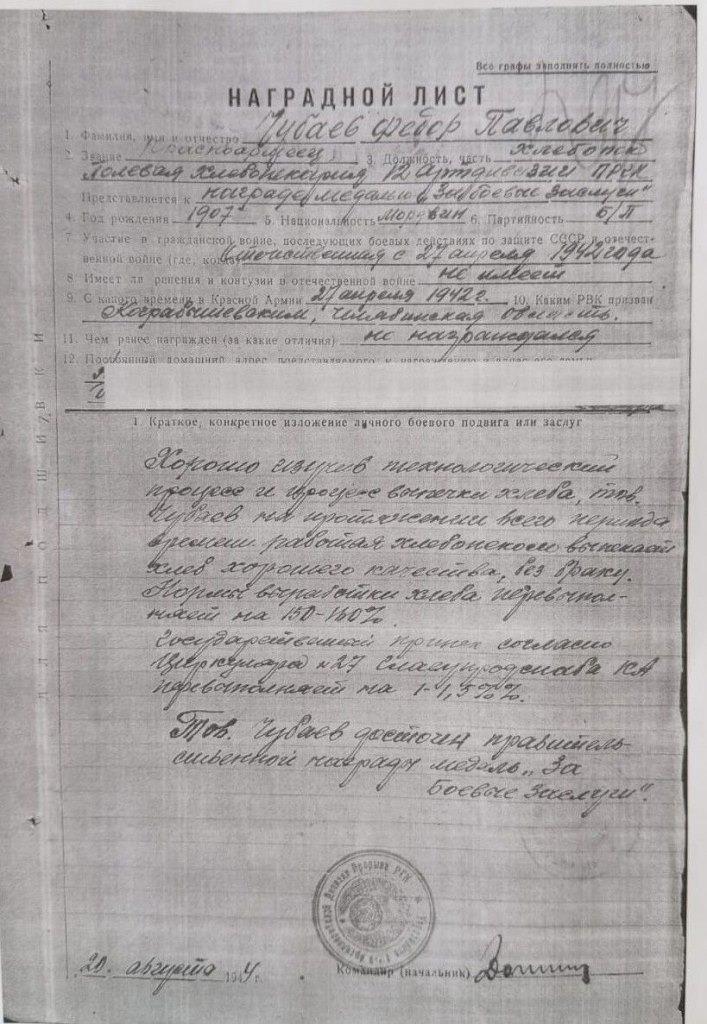 Все графы заполнять полностью
НАГРАДНОЙ ЛИСТ
1. Фамилия, имя и отчество Чубаев Федор Павлович
2. Звание Красноармеец 3. Должность, часть хлебопек
Полевая Хлебопекарня 12 Артдивизии РГК
Представляется к награде медалью „За боевые заслуги"
4. Год рождения 1907 5. Национальность Мордвин 6. Партийность б/п
7. Участие в гражданской войне, последующих боевых действиях по защите СССР и отечест-
венной войне (где, когда) Отечественная с 27 апреля 1942 года
8. Имеет ли ранения и контузии в отечественной войне не имеет
9. С какого времени в Красной Армии 27 апреля 1942 г. 10. Каким РВК призван
Челябинская область.
11. Чем ранее награжден (за какие отличия) не награждался
12. Постоянный домашний адрес представляемого к награждению и адрес его семьи
1. Краткое, конкретное изложение личного боевого подвига или заслуг
Хорошо изучив технологический
процесс и процесс выпечки хлеба, тов.
Чубаев на протяжении всего периода
времени работая хлебопеком выпекает
хлеб хорошего качества, без браку.
Нормы выработки хлеба перевыпол-
няет на 150-160%.
Государственный припек согласно
Циркуляра №27 КА
перевыполняет на 1-1,5%%.
Тов. Чубаев достоин правитель-
ственной награды медаль „За
Боевые Заслуги".
ДЛЯ ПОДШИВКИ
20 августа 1944 г.
Командир (начальник)